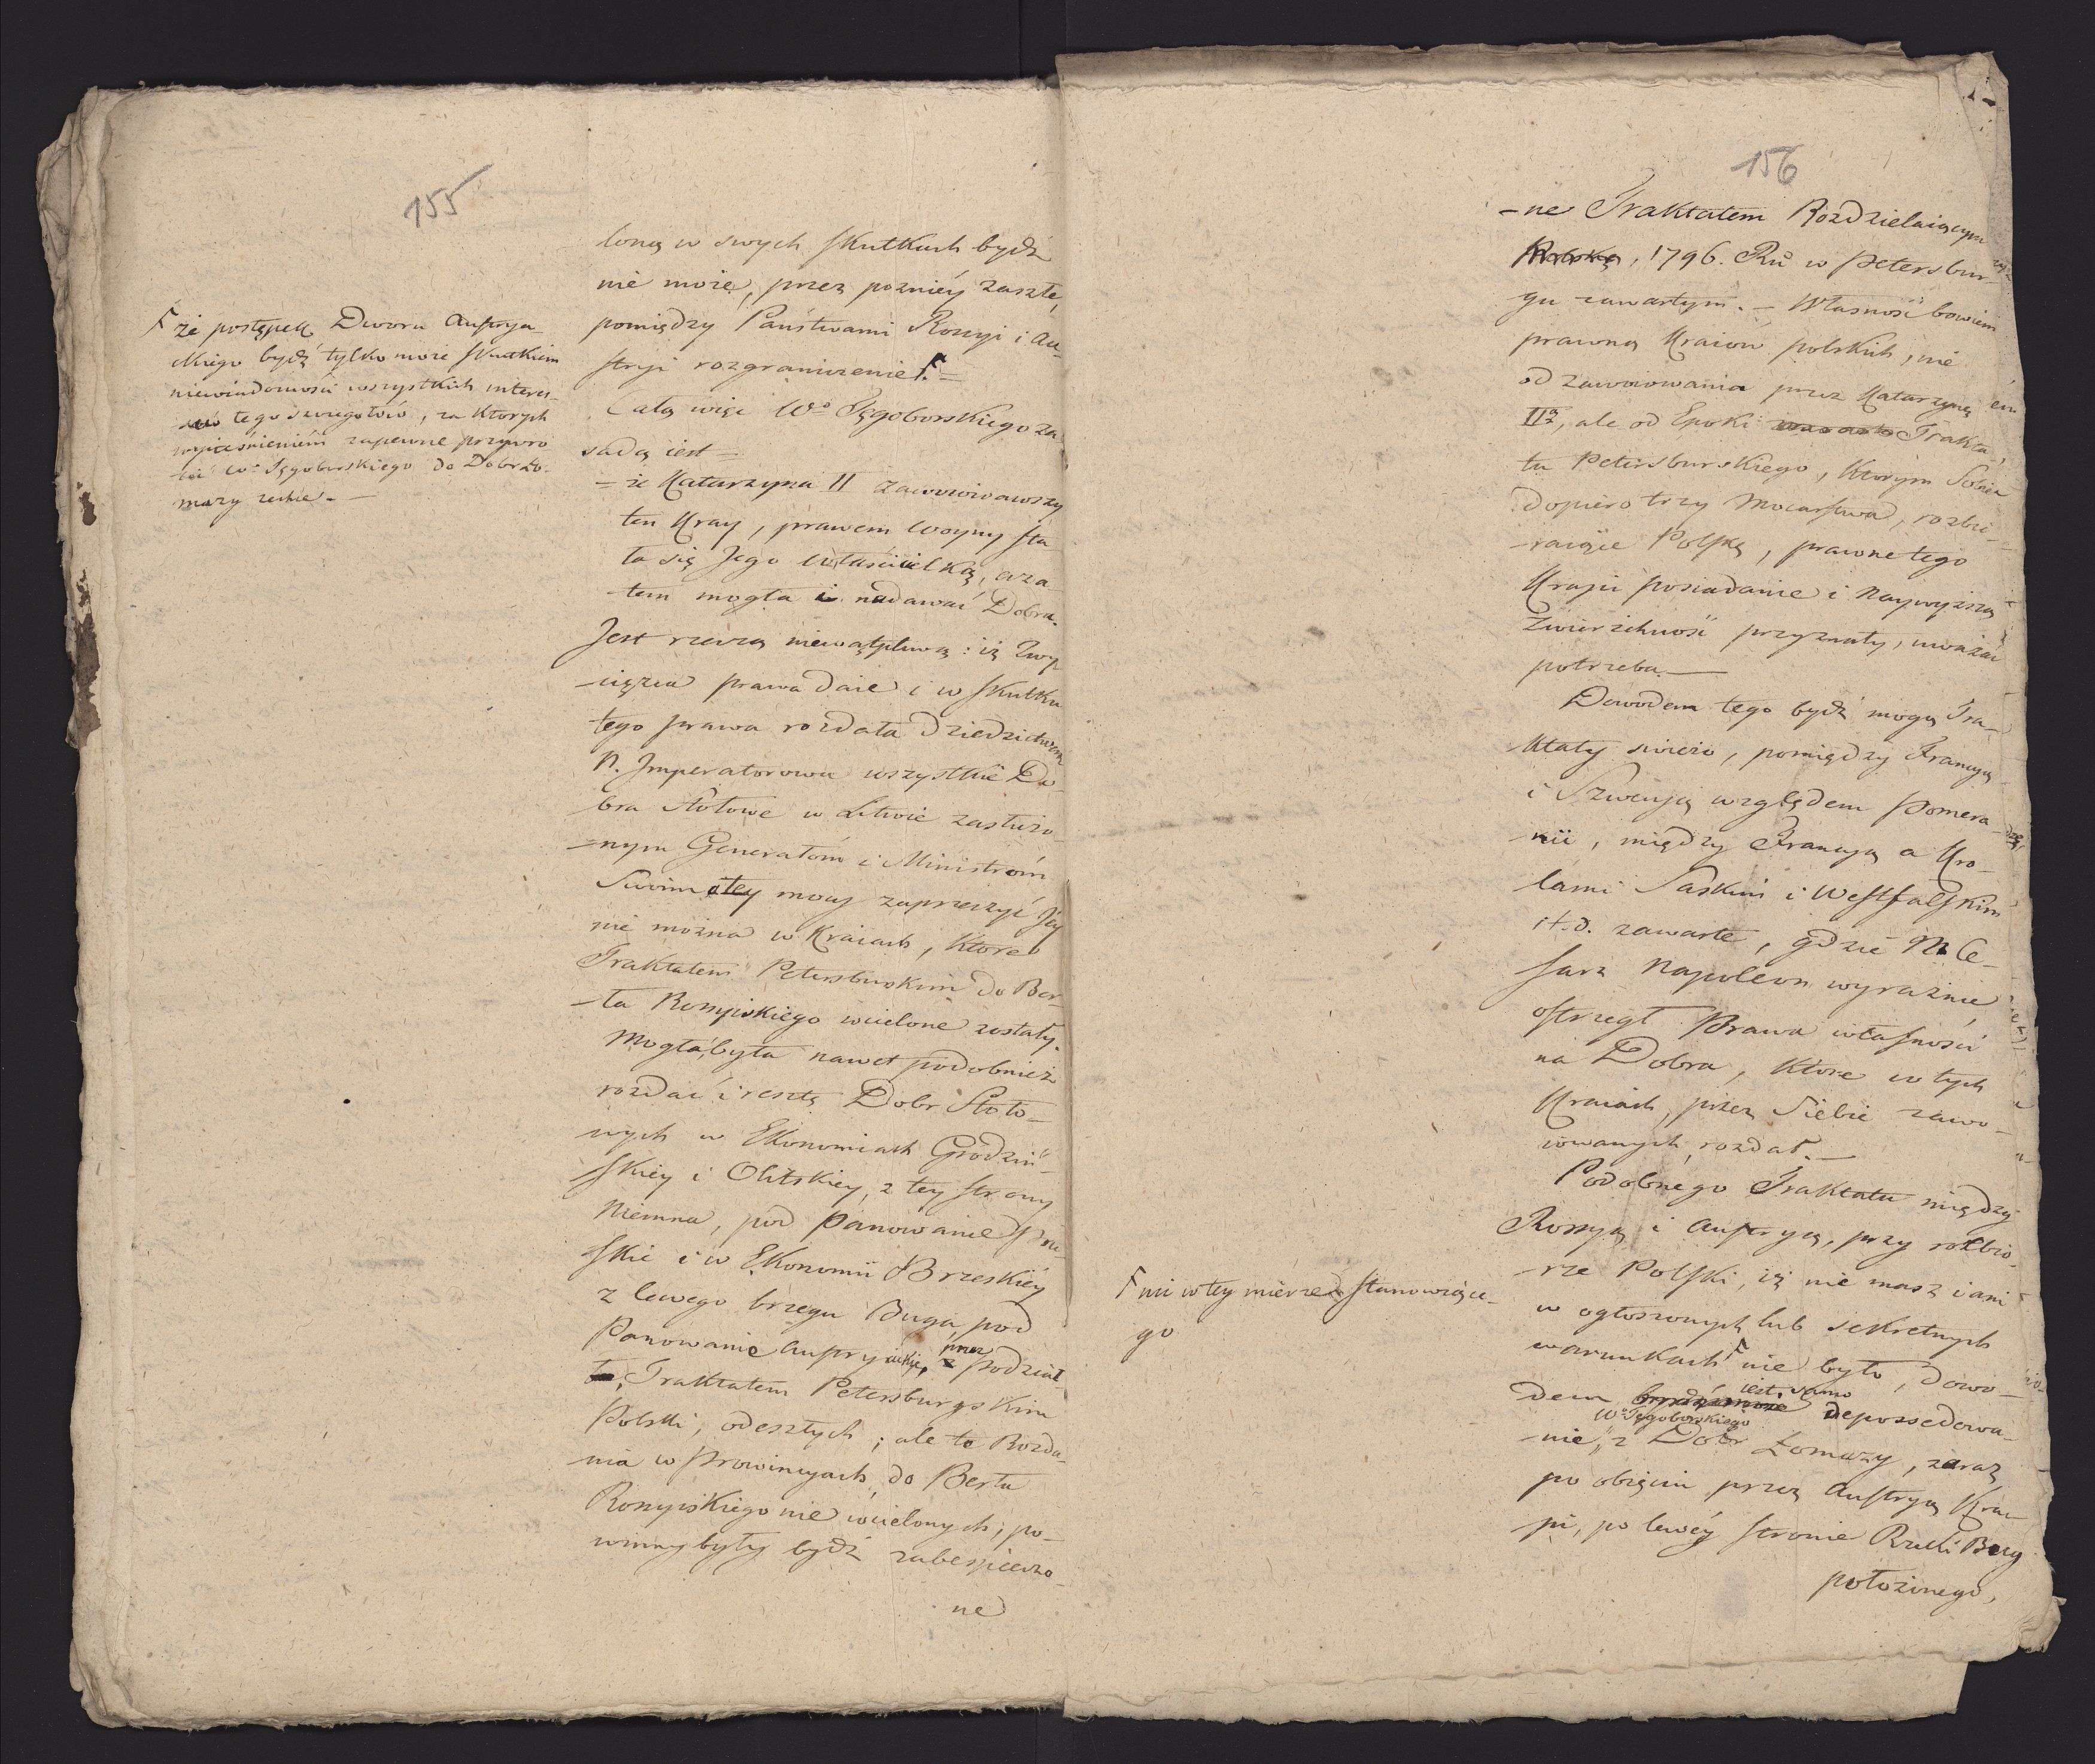 155
loną w swych skutkach bydź
nie może, przez pozniéy zaszłe,
pomiędzy Państwami Rossyi i Au-
stryi rozgraniczenie Ꞙ. =
Ꞙ że postępek Dworu Austrya-
ckiego bydź tylko może skutkiem
niewiadomości wszystkich interes-
tego szczegołów, za których
wyiaśnieniém zapewne przywro-
cić Wo Tęgoborskiego do Dobr Ło-
mazy zechce. —
Całą więc Wo Tęgoborskiego za
sadą iest =
= że Katarzyna II zawoiowawszy
ten Kray, prawem woyny sta
ła się Jego właścicielką, a za
tem mogła i nadawać Dobra.
Jest rzeczą niewątpliwą: iż Zwy
-cięzca prawa daie i w skutku
tego prawa rozdała dziedzictwem
N. Imperatorowa wszystkie Do-
bra stołowe w Litwie zasłużo-
-nym Generałóm i Ministróm
Swoim a tey mocy zaprzeczyć Jey
nie można w Kraiach, które
Traktatem Petersburskim do Ber-
-ła Rossyiskiego wcielone zostały.
Mogłabyła nawet podobnież
rozdać i resztę Dobr Stoło-
wych w Ekonomiach Grodziń-
skiéy i Olitskiey, z tey strony
Niemna, pod panowanie Pru-
skie i w Ekonomii Brzeskiéy
z lewego brzegu Buga pod
Panowanie Austryackie, przez podział
Traktatem Petersburgskim
Polski, odeszłych; ale te Rozda-
nia w Prowincyach do Berła
Rossyiskiego nie wcielonych, po-
winny były bydź zabespieczo-
ne
156
-ne Traktatem Rozdzielaiącym
Polskę, 1796. Ru w Petersbur-
gu zawartym. – Własność bowiem
prawną Kraiów polskich, nie
od zawoiowania przez Katarzynę
IIą, ale od Epoki Trakta-
tu Petersburskiego, którym Sobie
dopiero trzy Mocarstwa, rozbie-
-raiące Polskę, prawne tego
Kraju posiadanie i naywyższą
Zwierzchność przyznały, uważać
potrzeba. —
Dowodem tego bydź mogą Tra-
ktaty świeżo, pomiędzy Francyą
i Szwecyą względem Pomera-
nii, między Francyą a Kro-
lami Saskim i Westfalskim
i t. d. zawarte, gdzie N. Ce-
sarz Napoleon wyraźnie
ostrzegł Prawa własności
na Dobra, które w tych
Kraiach, przez Siebie zawo-
iowanych, rozdał. —
Podobnego Traktatu między
Rossyą i Austryą, przy rozbio-
-rze Polski, iż nie masz i ani
w ogłoszonych lub sekretnych
warunkach Ꞙ nie było, dowo-
Ꞙ nic w tey mierze stanowiące-
go
dem iest samo depossedowa-
nie Wo Tęgoborskiego z Dobr Łomazy, zaraz
po obięciu przez Austryą Kra-
ju, po lewéy stronie Rzeki Bug
położonego,